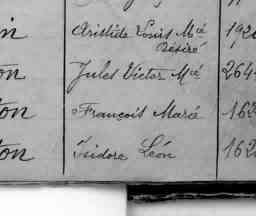 in Aristide Louis Mie 192
Désiré
ton Jules Victor Mie 264
ton François Marie 162
ton Isidore Léon 162